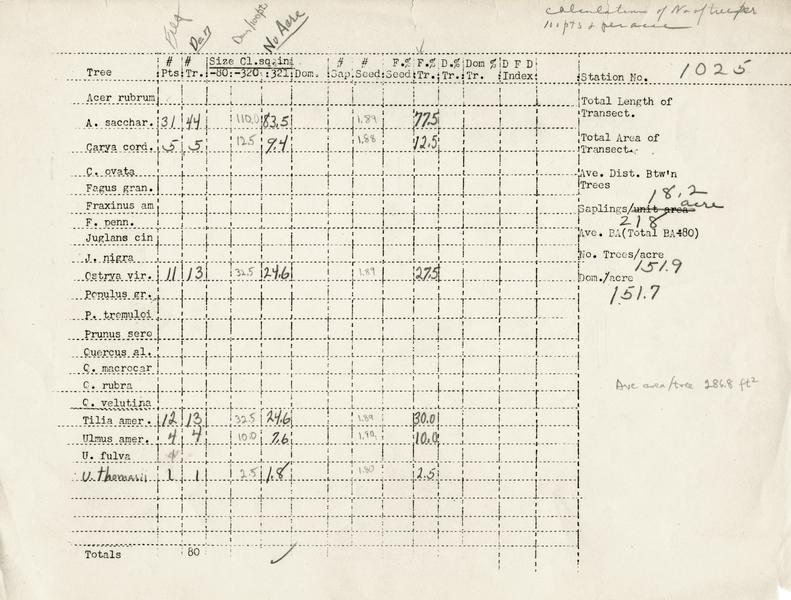 Calculations of No of trees per
100 pts & per acre
Freq Den Den/100pts No Acre
# # Size Cl.sq.in. # # F.% F.% D.% Dom % D F D
Tree Pts. Tr. -80: -320 :321 Dom. Sap. Seed. Seed Tr. Tr. Tr. Index
Station No. 1025
Acer rubrum
Total Length of
Transect.
A. sacchar. 31 44 110.0 83.5 1.89 77.5
Total Area of
Transect.
Carya cord. 5 5 12.5 9.4 1.88 12.5
C. ovata
Ave. Dist. Btw'n
Trees 18.2
Fagus gran.
Fraxinus am
Saplings/unit area acre
218
F. penn.
Juglans cin
Ave. BA(Total BA÷80)
J. nigra
No. Trees/acre
151.9
Ostrya vir. 11 13 32.5 24.6 1.89 27.5
Dom./acre
151.7
Populus gr.
P. tremuloi
Prunus sero
Quercus al.
Q. macrocar
Q. rubra
Ave area/tree 286.8 ft²
Q. velutina
Tilia amer. 12 13 32.5 24.6 1.89 30.0
Ulmus amer. 4 4 10.0 7.6 1.90 10.0
U. fulva
U. thomasii 1 1 2.5 1.8 1.80 2.5
Totals 80